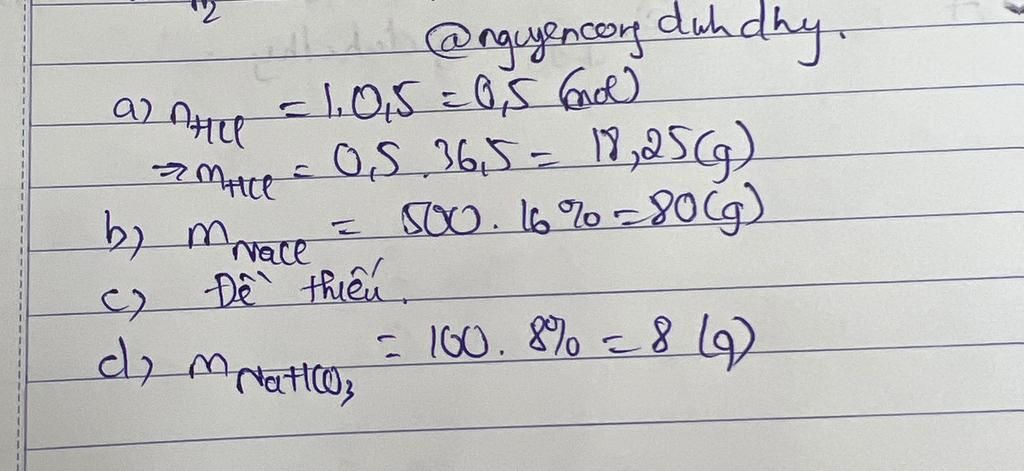 @nguyencong duh dhy.
a) nHCl = 1.0,5 = 0,5 (mol)
⇒ mHCl = 0,5 . 36,5 = 18,25 (g)
b) mNaCl = 500 . 16% = 80 (g)
c) Đề thiếu.
d) mNaHCO3 = 100 . 8% = 8 (g)